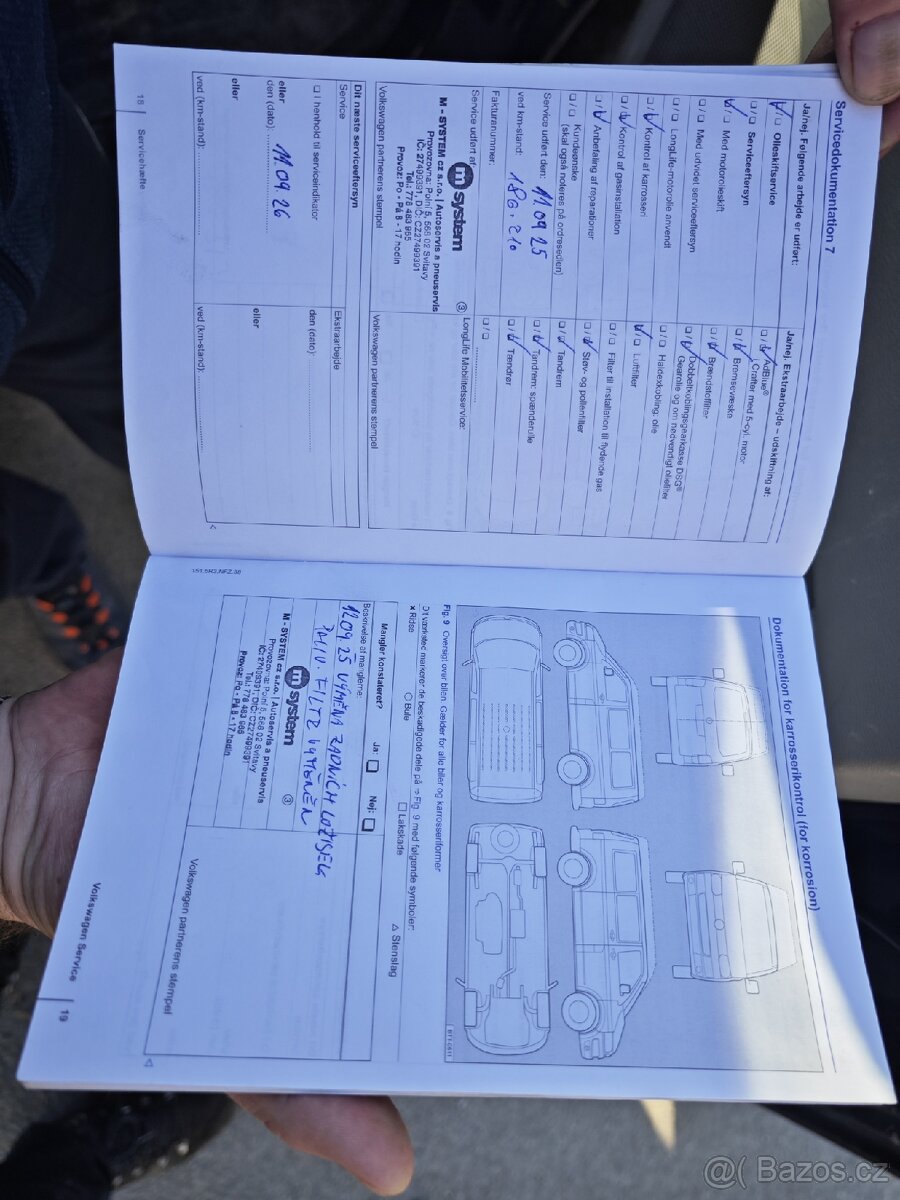 Servicedokumentation 7
Ja/nej. Følgende arbejde er udført:
☑/☐ Olieskiftservice
☐/☐ Serviceeftersyn
☑ Med motorolieskift
☐/☐ Med udvidet serviceeftersyn
☐/☐ LongLife-motorolie anvendt
☐/☑ Kontrol af karrosseri
☐/☑ Kontrol af gasinstallation
☐/☑ Anbefaling af reparationer
☐/☐ Kundeønske
(skal også noteres på ordresedlen)
Service udført den: 11 09 25
ved km-stand: 186.210
Fakturanummer:
Service udført af:
m system
M - SYSTEM cz s.r.o. | Autoservis a pneuservis
Provozovna: Polní 5, 568 02 Svitavy
IČ: 27499391, DIČ: CZ27499391
Tel.: 778 483 965
Provoz: Po - Pá 8 - 17 hodin
③
Volkswagen partnerens stempel
Ja/nej. Ekstraarbejde – udskiftning af:
☐/☑ AdBlue®
Crafter med 5-cyl. motor
☐/☑ Bremsevæske
☐/☑ Brændstoffilter
☐/☑ Dobbeltkoblingsgearkasse DSG®
Gearolie og om nødvendigt oliefilter
☐/☐ Haldexkobling, olie
☑ Luftfilter
☐/☐ Filter til installation til flydende gas
☐/☑ Støv- og pollenfilter
☐/☑ Tandrem
☐/☑ Tandrem: spænderulle
☐/☑ Tændrør
☐/☐
LongLife Mobilitetsservice:
Volkswagen partnerens stempel
Dit næste serviceeftersyn
Service
☐ I henhold til serviceindikator
eller
den (dato): 11 09. 26
eller
ved (km-stand):
Ekstraarbejde
den (dato):
eller
ved (km-stand):
18 | Servicehæfte
Dokumentation for karrosserikontrol (for korrosion)
BTT-0411
Fig. 9 Oversigt over bilen. Gælder for alle biler og karrosseriformer
Dit værksted markerer de beskadigede dele på ⇒ Fig. 9 med følgende symboler:
× Ridse
○ Bule
☐ Lakskade
△ Stenslag
Mangler konstateret?
Ja: ☐
Nej: ☐
Beskrivelse af manglerne:
12 09 25 VÝMĚNA ZADNÍCH LOŽISEG
PALIV. FILTR VYMĚNĚN
m system
M - SYSTEM cz s.r.o. | Autoservis a pneuservis
Provozovna: Polní 5, 568 02 Svitavy
IČ: 27499391, DIČ: CZ27499391
Tel.: 778 483 965
Provoz: Po - Pá 8 - 17 hodin
③
Volkswagen partnerens stempel
Volkswagen Service | 19
@( Bazos.cz